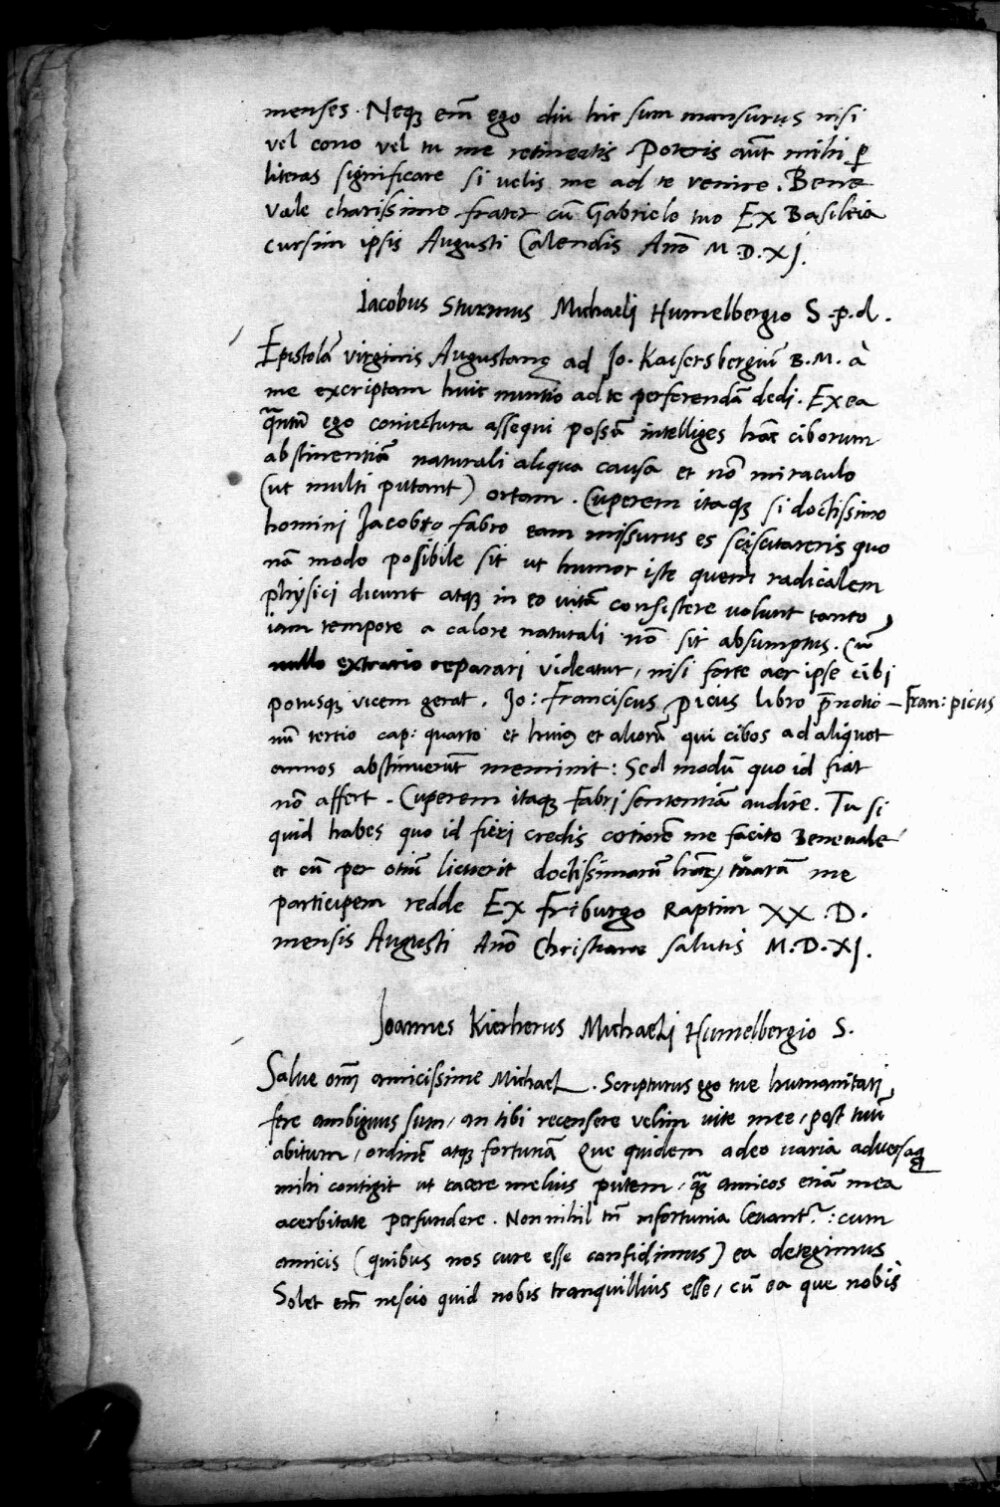 menses. Neq₃ em̃ ego diu hic sum mansurus nisi
vel cono vel tu me retineatis. Poteris aũt mihi ꝑ
literas significare si uelis me ad te venire. Bene
Vale charissime frater cũ Gabriele tuo Ex Basileia
cursim ipsis Augusti Calendis Año M.D.XI.
Iacobus Sturmus Michaeli Humelbergio S.p.d.
Epistolã virginis Augustanę ad Jo. Kaisersbergiũ B.M. à
me excriptam huic nuntio ad te perferendã dedi. Ex ea
q̃ntũ ego coniectura assequi possũ intelliges hãc ciborum
abstinentiã naturali aliqua causa et nõ miraculo
(ut multi putant) ortam. Cuperem itaq₃ si doctissimo
homini Jacobo fabro eam missurus es sciscitareris quo
nã modo possibile sit ut humor iste quem radicalem
physici dicunt atq₃ in eo uitã consistere uolunt tanto
iam tempore a calore naturali nõ sit absumptus. Cũ
nullo extrario reparari videatur, nisi forte aer ipse cibi
potusq₃ vicem gerat. Jo: Franciscus picus libro p̃notio – Fran: picus
nũ tertio cap: quarto et huiꝰ et aliorũ qui cibos ad aliquot
annos abstinuerũt meminit: Sed modũ quo id fiat
nõ affert. Cuperem itaq₃ Fabri sententiã audire. Tu si
quid habes quo id fieri credis cetiorẽ me facito Beneuale
et cũ per otiũ licuerit doctissimarũ tuarũ me
participem redde Ex Friburgo Raptim XX.D.
mensis Augusti Año Christiane salutis M.D.XI.
Joannes Kierherus Michaeli Humelbergio S.
Salue om̃ amicissime Michael. Scripturus ego tue humanitati,
fere ambiguus sum, an tibi recensere velim uite mee, post tuũ
abitum, ordinẽ atq₃ fortunã Que quidem adeo uaria aduersaq₃
mihi contigit ut tacere melius putem, q̃₃ amicos etiã mea
acerbitate perfundere. Nonnihil tñ infortunia leuant͛: cum
amicis (quibus nos cure esse confidimus) ea detegimus
Solet em̃ nescio quid nobis tranquillius esse, cũ ea que nobis